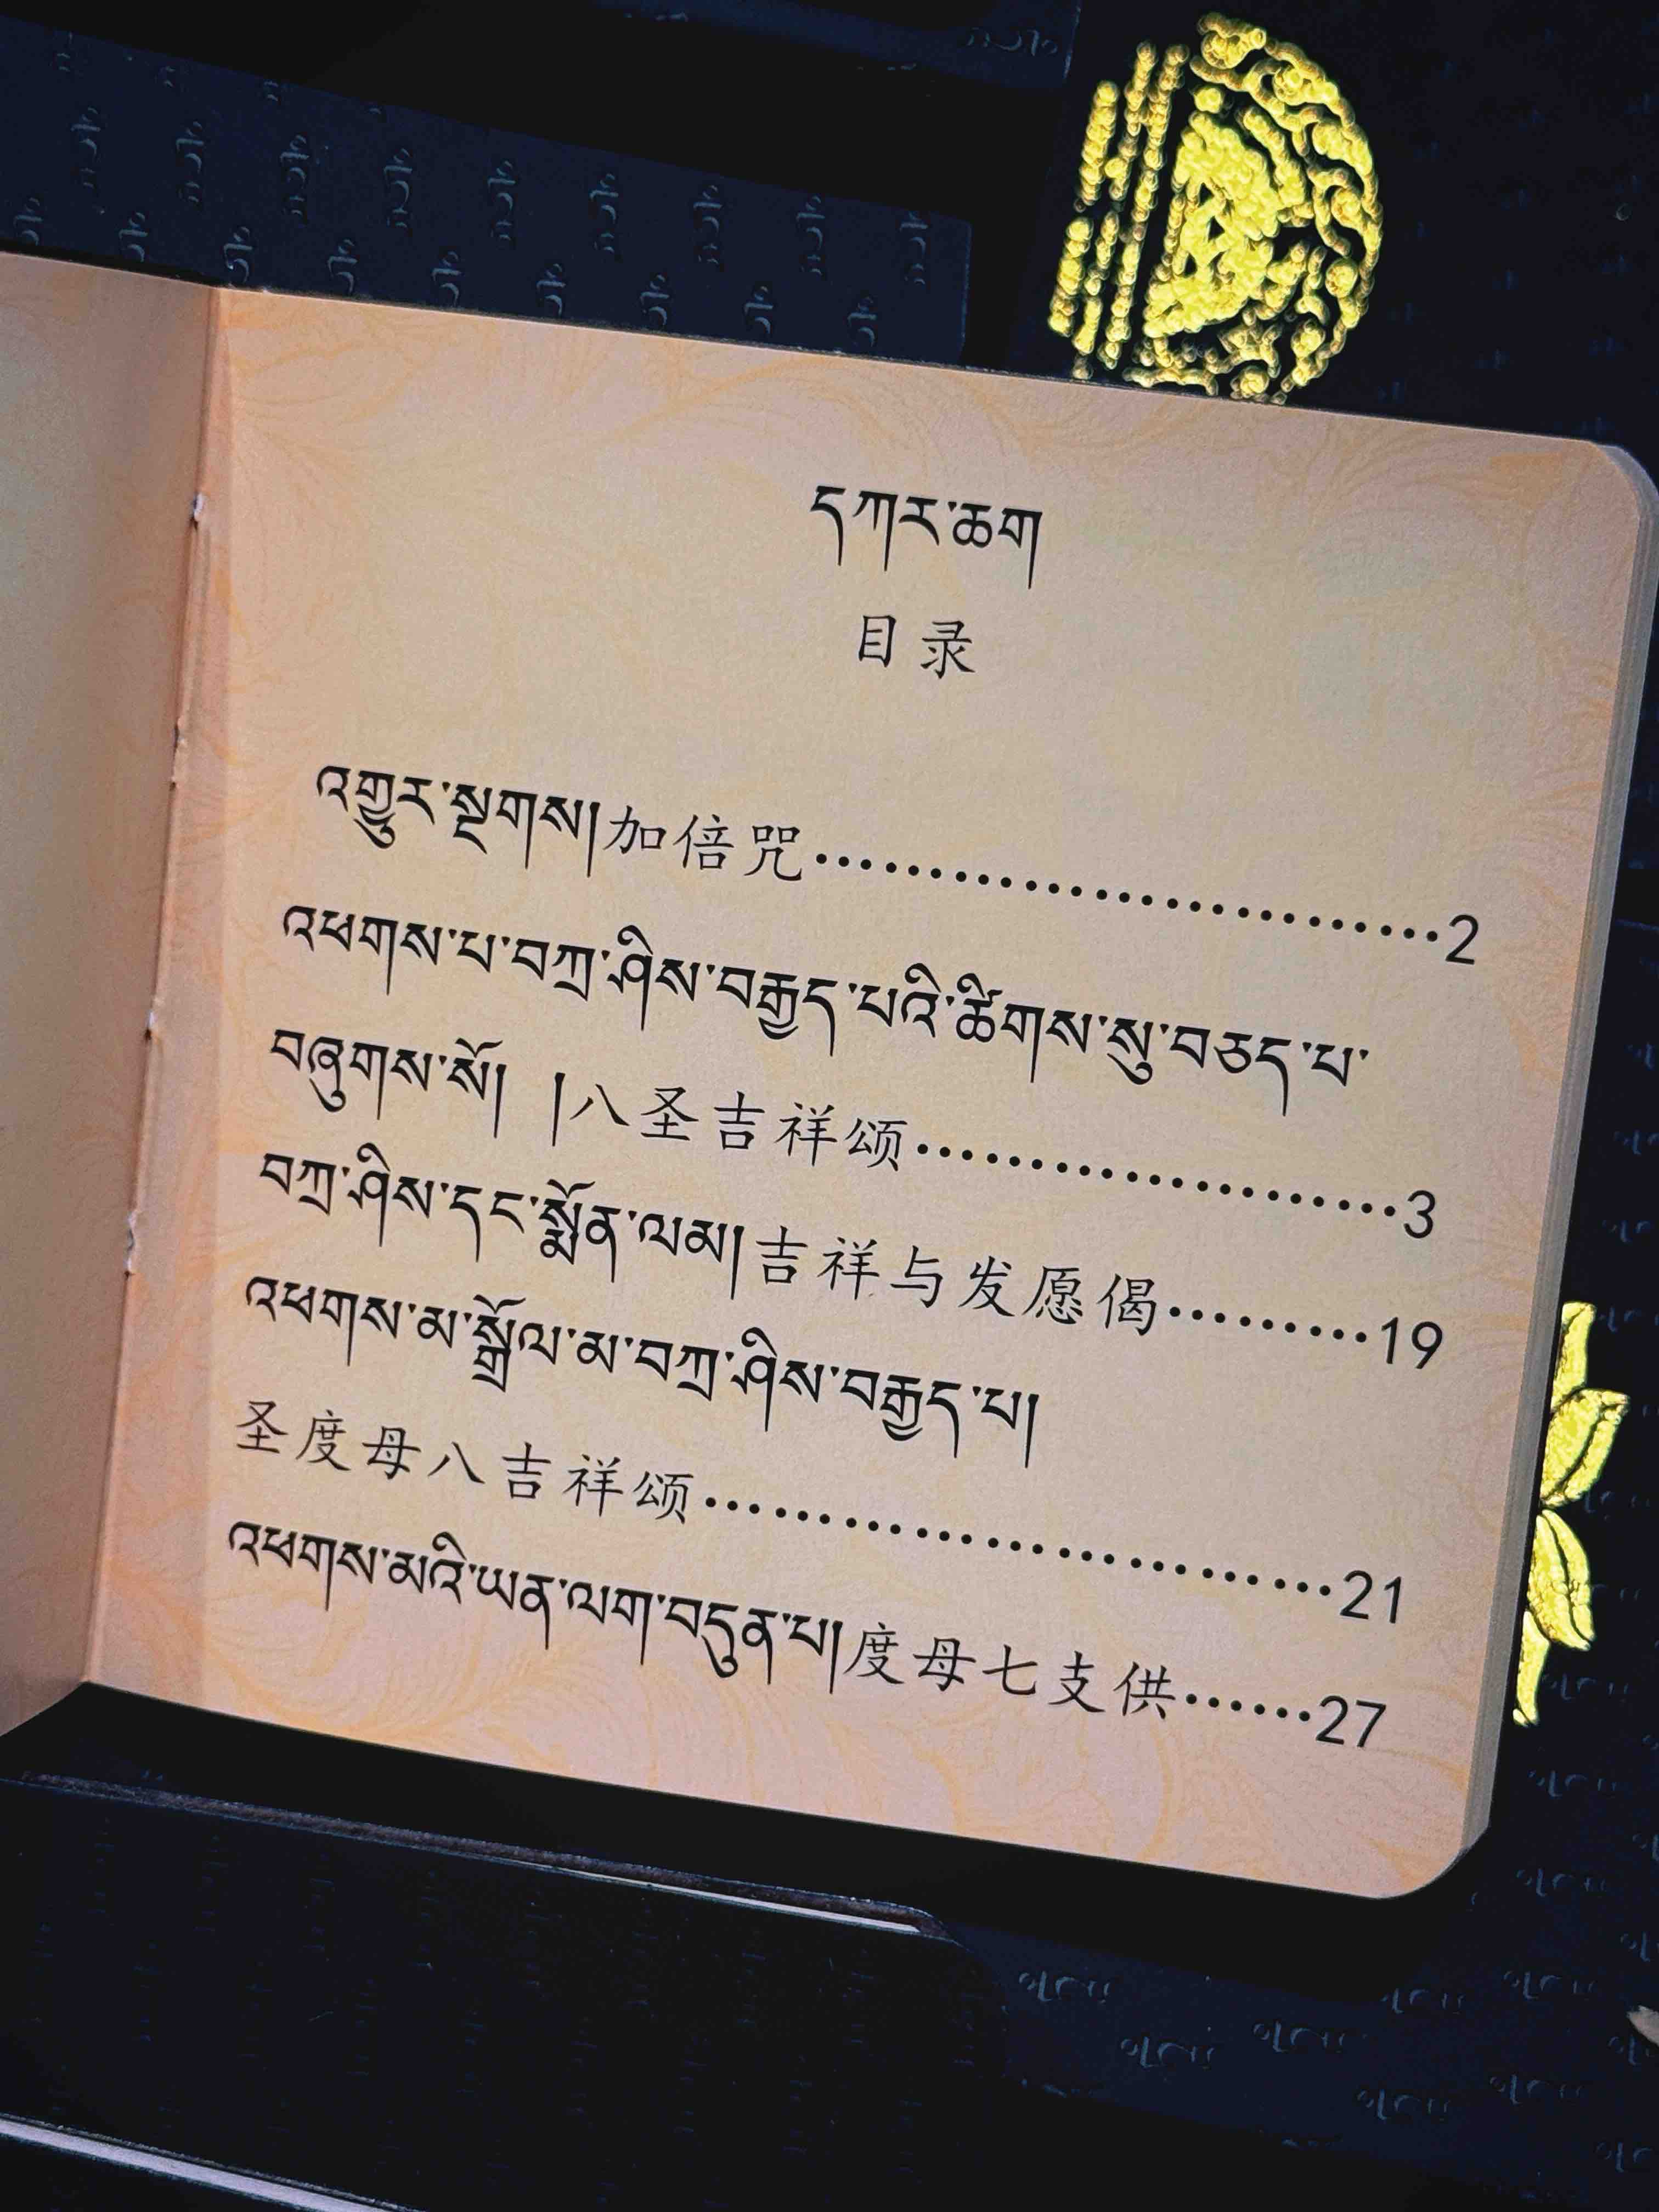 དཀར་ཆག
目录
འགྱུར་སྔགས།加倍咒……………………2
འཕགས་པ་བཀྲ་ཤིས་བརྒྱད་པའི་ཚིགས་སུ་བཅད་པ་
བཞུགས་སོ། །八圣吉祥颂……………………3
བཀྲ་ཤིས་དང་སྨོན་ལམ།吉祥与发愿偈………19
འཕགས་མ་སྒྲོལ་མ་བཀྲ་ཤིས་བརྒྱད་པ།
圣度母八吉祥颂……………………21
འཕགས་མའི་ཡན་ལག་བདུན་པ།度母七支供……27